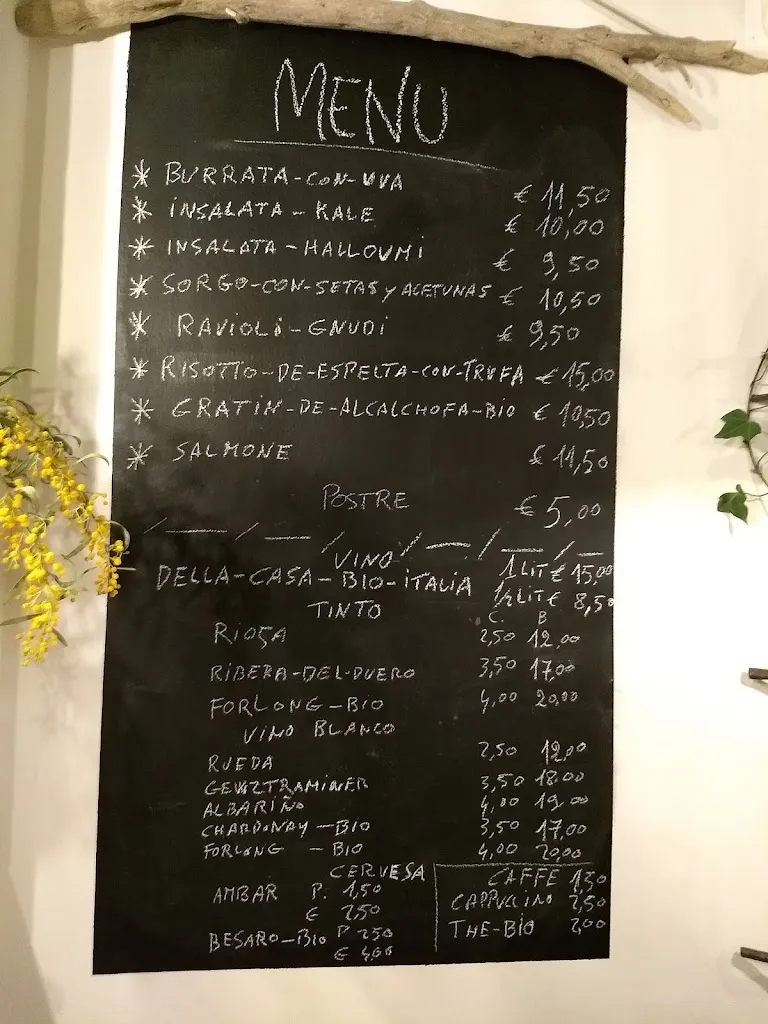 MENU
* BURRATA-CON-UVA € 11,50
* INSALATA - KALE € 10,00
* INSALATA - HALLOUMI € 9,50
* SORGO-CON-SETAS y ACETUNAS € 10,50
* RAVIOLI - GNUDI € 9,50
* RISOTTO-DE-ESPELTA-CON-TRUFA € 15,00
* GRATIN-DE-ALCALCHOFA-BIO € 10,50
* SALMONE € 11,50
POSTRE € 5,00
VINO
DELLA-CASA-BIO-ITALIA 1 LIT € 15,00
1/2 LIT € 8,50
TINTO C. B
RIOJA 2,50 12,00
RIBERA-DEL-DUERO 3,50 17,00
FORLONG-BIO 4,00 20,00
VINO BLANCO
RUEDA 2,50 12,00
GEWZTRAMINER 3,50 18,00
ALBARIÑO 4,00 19,00
CHARDONAY - BIO 3,50 17,00
FORLONG - BIO 4,00 20,00
CERVESA
AMBAR P. 1,50
G 2,50
BESARO-BIO P 2,50
G 4,00
CAFFE 1,50
CAPPUCCINO 2,50
THE-BIO 2,00